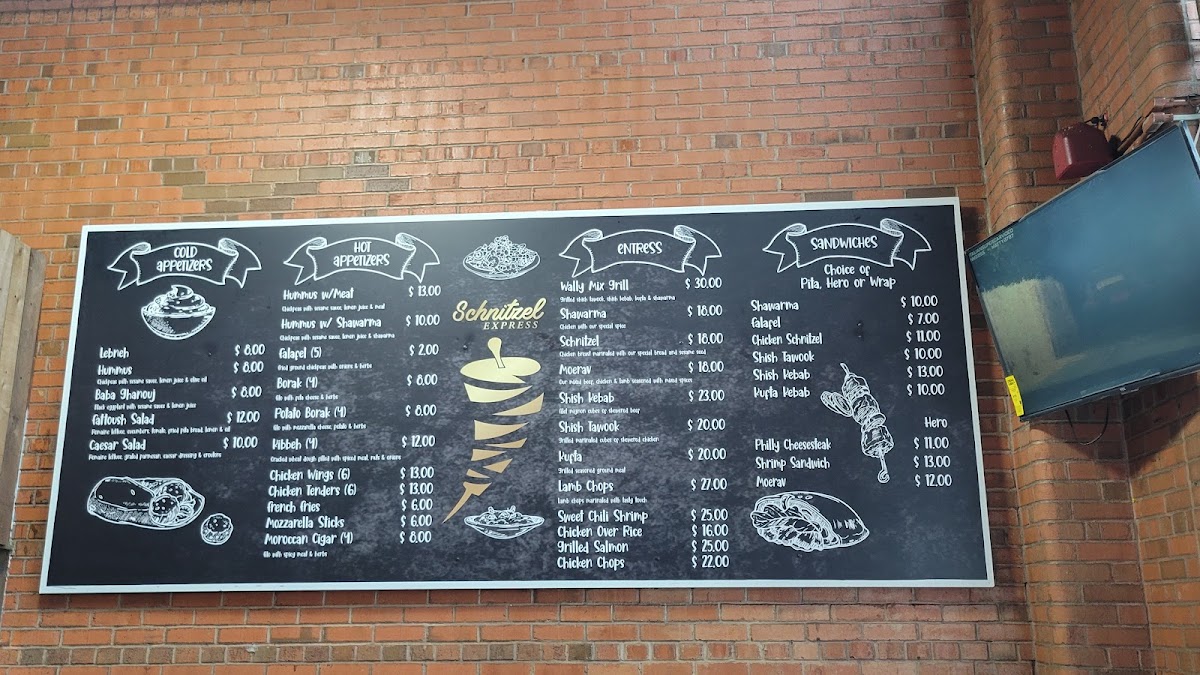 COLD
APPETIZERS
Lebneh $ 8.00
Hummus $ 8.00
Chickpeas with sesame sauce, lemon juice & olive oil
Baba Ghanouj $ 8.00
Black eggplant with sesame sauce & lemon juice
Fattoush Salad $ 12.00
Romaine lettuce, cucumbers, tomato, fried pita bread, lemon & oil
Caesar Salad $ 10.00
Romaine lettuce, grated parmesan, caesar dressing & croutons
HOT
APPETIZERS
Hummus w/Meat $ 13.00
Chickpeas with sesame sauce, lemon juice & meat
Hummus w/ Shawarma $ 10.00
Chickpeas with sesame sauce, lemon juice & shawarma
Falafel (5) $ 2.00
Fried ground chickpeas with onions & herbs
Borak (4) $ 8.00
Filo with feta cheese & herbs
Potato Borak (4) $ 8.00
Filo with mozzarella cheese, potato & herbs
Kibbeh (4) $ 12.00
Cracked wheat dough filled with spiced meat, nuts & onions
Chicken Wings (6) $ 13.00
Chicken Tenders (6) $ 13.00
French Fries $ 6.00
Mozzarella Sticks $ 6.00
Moroccan Cigar (4) $ 8.00
Filo with spicy meat & herbs
Schnitzel
EXPRESS
ENTRESS
Wally Mix Grill $ 30.00
Grilled shish tawook, shish kebab, kufta & shawarma
Shawarma $ 18.00
Chicken with our special spice
Schnitzel $ 18.00
Chicken breast marinated with our special bread and sesame seed
Moerav $ 18.00
Our mixed beef, chicken & lamb seasoned with mixed spices
Shish Kebab $ 23.00
Filet mignon cubes of skewered beef
Shish Tawook $ 20.00
Grilled marinated cubes of skewered chicken
Kufta $ 20.00
Grilled seasoned ground meat
Lamb Chops $ 27.00
Lamb chops marinated with tasty touch
Sweet Chili Shrimp $ 25.00
Chicken Over Rice $ 16.00
Grilled Salmon $ 25.00
Chicken Chops $ 22.00
SANDWICHES
Choice of
Pita, Hero or Wrap
Shawarma $ 10.00
Falafel $ 7.00
Chicken Schnitzel $ 11.00
Shish Tawook $ 10.00
Shish Kebab $ 13.00
Kufta Kebab $ 10.00
Hero
Philly Cheesesteak $ 11.00
Shrimp Sandwich $ 13.00
Moerav $ 12.00